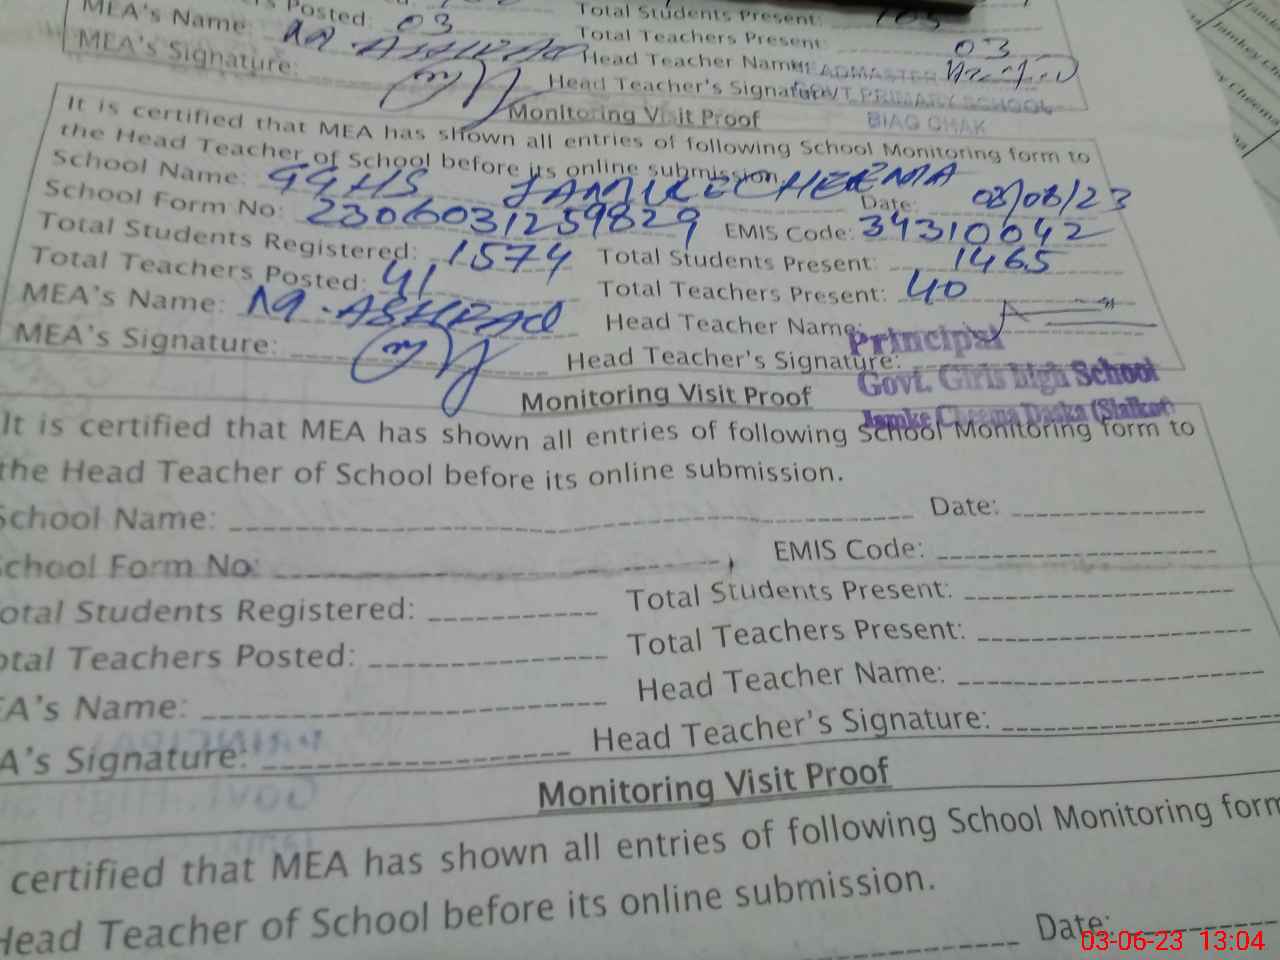 Posted: 03 Total Students Present: 103
MEA's Name: M. ASHRAQ Total Teachers Present: 03
MEA's Signature: Head Teacher Name: HEADMASTER
Head Teacher's Signature: GOVT. PRIMARY SCHOOL
BIAG CHAK
Monitoring Visit Proof
It is certified that MEA has shown all entries of following School Monitoring form to
the Head Teacher of School before its online submission.
School Name: GGHS JAMKE CHEEMA Date: 03/08/23
School Form No: 2306031259829 EMIS Code: 34310042
Total Students Registered: 1574 Total Students Present: 1465
Total Teachers Posted: 41 Total Teachers Present: 40
MEA's Name: M. ASHRAQ Head Teacher Name:
MEA's Signature: Head Teacher's Signature:
Principal
Govt. Girls high School
Jamke Cheema Daska (Sialkot)
Monitoring Visit Proof
It is certified that MEA has shown all entries of following School Monitoring form to
the Head Teacher of School before its online submission.
School Name: Date:
School Form No: EMIS Code:
otal Students Registered: Total Students Present:
otal Teachers Posted: Total Teachers Present:
EA's Name: Head Teacher Name:
A's Signature: Head Teacher's Signature:
Monitoring Visit Proof
certified that MEA has shown all entries of following School Monitoring form
Head Teacher of School before its online submission.
Date:
03-06-23 13:04